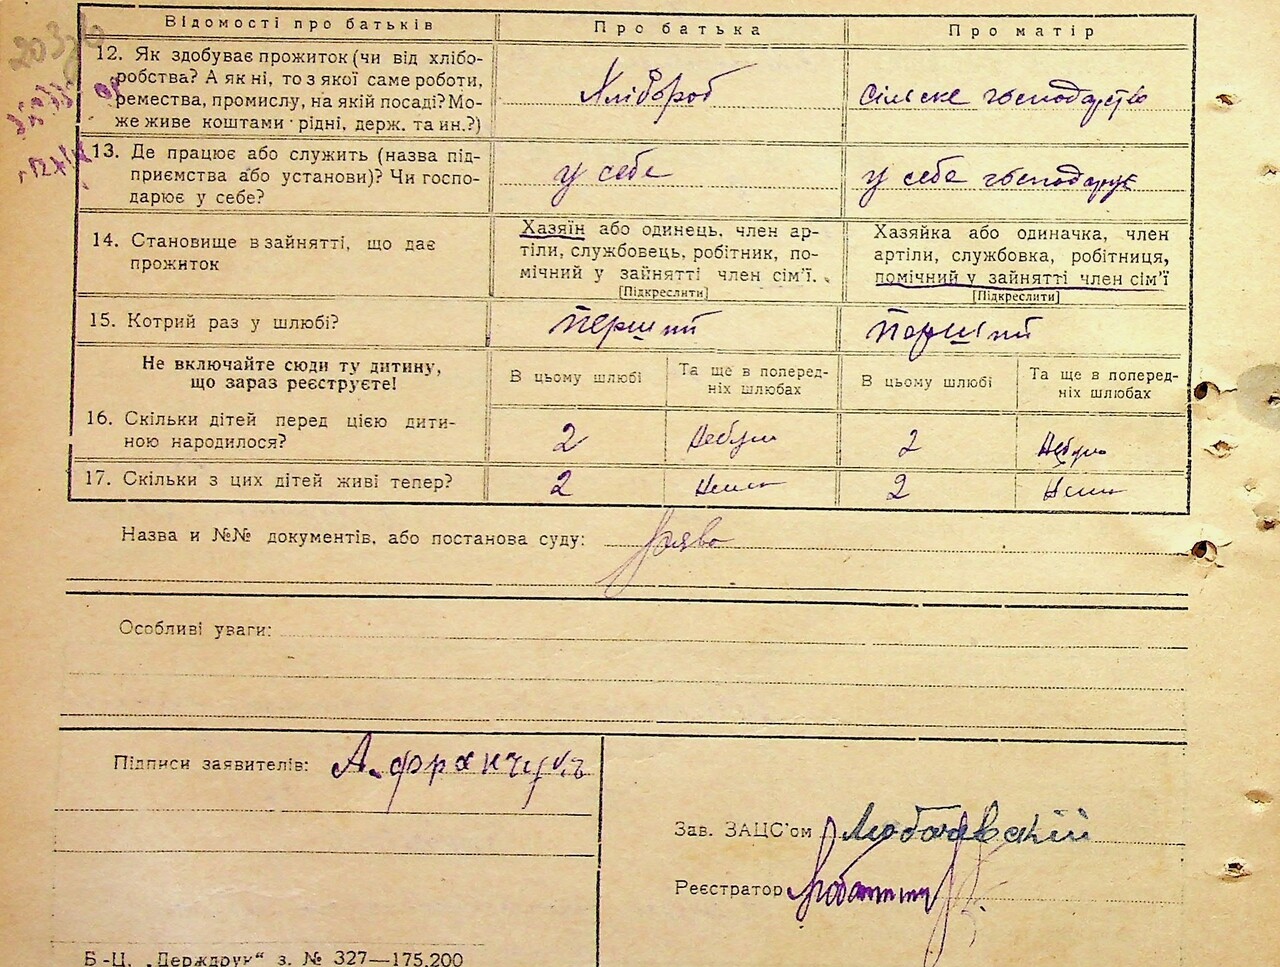 Відомості про батьків
Про батька
Про матір
12. Як здобуває прожиток (чи від хлібо-
робства? А як ні, то з якої саме роботи,
ремества, промислу, на якій посаді? Мо-
же живе коштами рідні, держ. та ин.?)
Хлібороб
сільське господарство
13. Де працює або служить (назва під-
приємства або установи)? Чи госпо-
дарює у себе?
у себе
у себе господарує
14. Становище в зайнятті, що дає
прожиток
Хазяїн або одинець, член ар-
тіли, службовець, робітник, по-
мічний у зайнятті член сім'ї.
[Підкреслити]
Хазяйка або одиначка, член
артіли, службовка, робітниця,
помічний у зайнятті член сім'ї
[Підкреслити]
15. Котрий раз у шлюбі?
Перший
Перший
Не включайте сюди ту дитину,
що зараз реєструєте!
В цьому шлюбі
Та ще в поперед-
ніх шлюбах
В цьому шлюбі
Та ще в поперед-
ніх шлюбах
16. Скільки дітей перед цією дити-
ною народилося?
2
Небули
2
Небули
17. Скільки з цих дітей живі тепер?
2
2
Назва и №№ документів, або постанова суду:
Заява
Особливі уваги:
Підписи заявителів: А. Франчукъ
Зав. ЗАЦС'ом
Реєстратор
Б-Ц. „Держдрук“ з. № 327—175.200